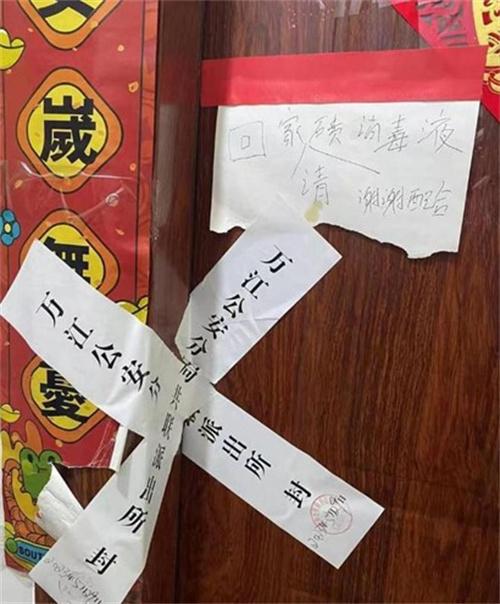 歲
無
憂
回家喷消毒液
请
谢谢配合
万江公安分局共联派出所封
万江公安分
派出所封
SOUT